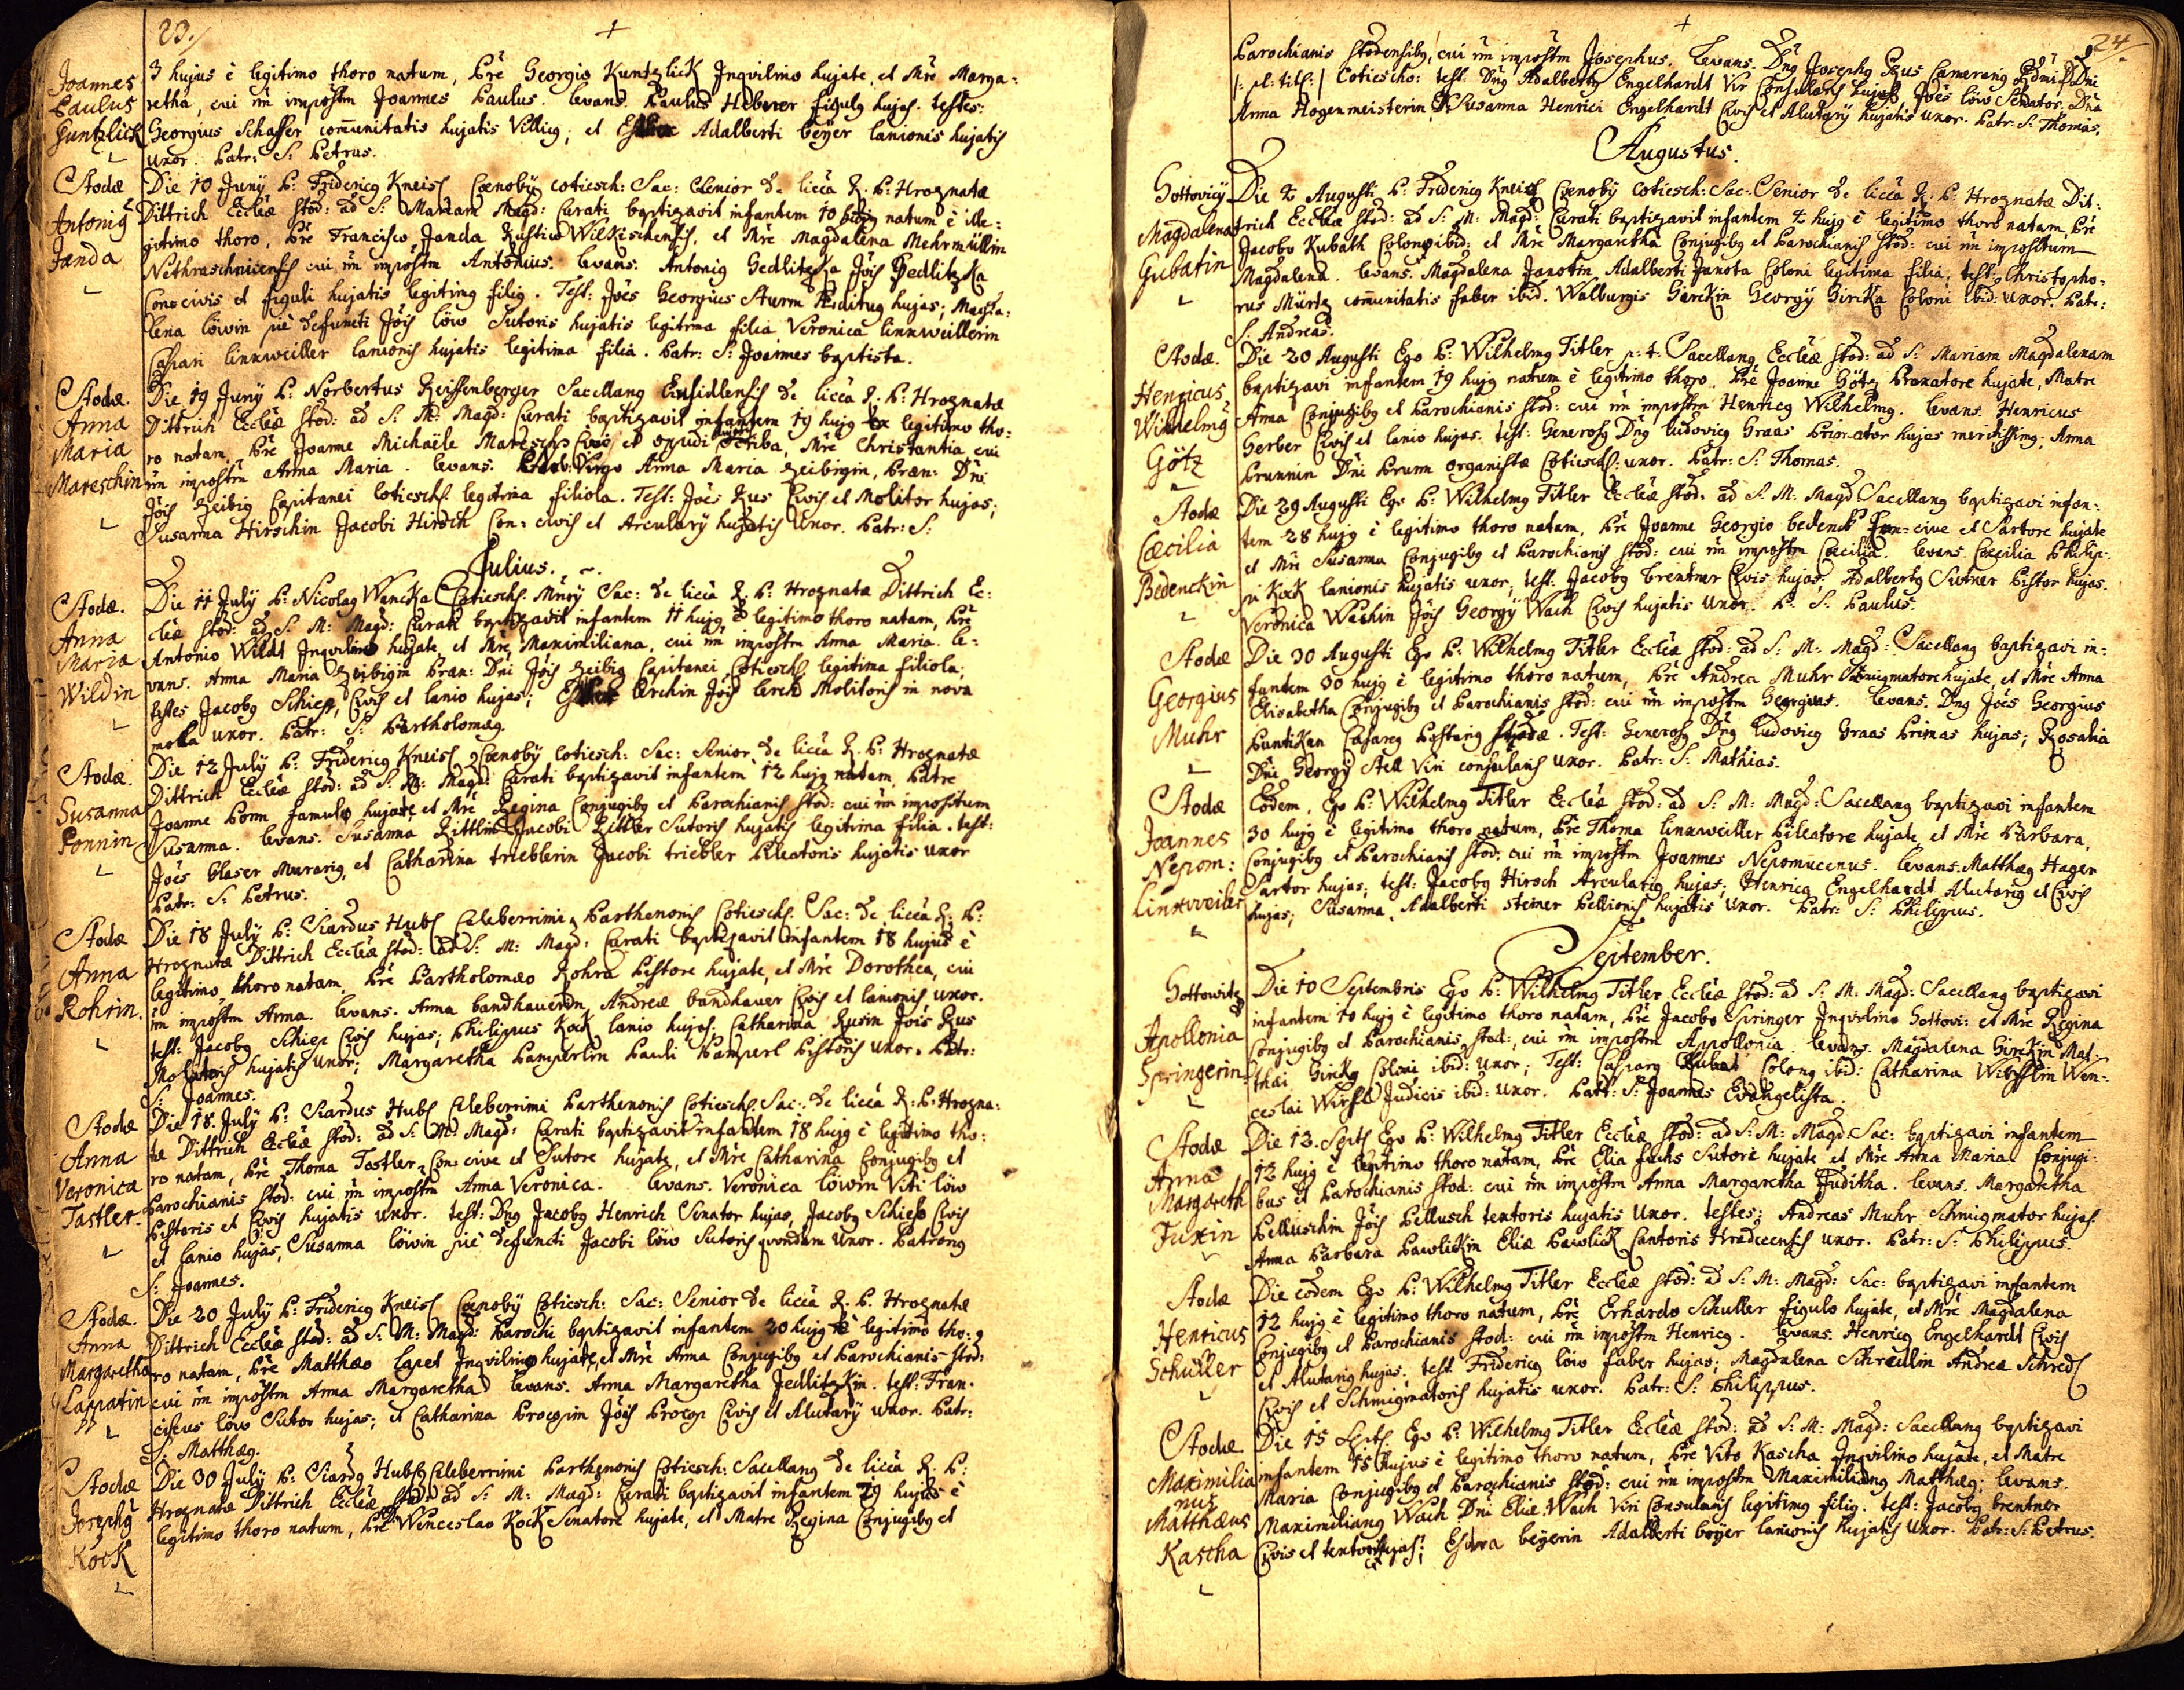 23.
Joannes Paulus Guntzlick
3 hujus è legitimo thoro natum, Pre Georgio Kuntzlick Inqvilino hujate, et Mre Marga=
retha, cui nn impostm Joannes Paulus. Levans. Paulus Heberer figulq hujas. testes:
Georgius Schaffer comunitatis hujatis Villicq; et Esther Adalberti beÿer lanionis hujatis
uxor. Patr: S: Petrus.
Stodæ Antoniq Janda
Die 10 Junÿ P: Fridericq Kneisl Cœnobÿ Cotiesch: Sac: Senior de licià R. P: Hroznatæ
Dittrich Eccleæ Stod: ad S: Mariam Magd: Curati baptizavit infantem 10 hujq natum è ille=
gitimo thoro, Pre Francisco Janda Rustico Wilkischensis, et Mre Magdalena Mehrmüllin
Nethraschnicensis cui nn impostm Antonius. Levans. Antoniq Sedlitzka Jois Sedlitzka
Con=civis et figuli hujatis legitimq filiq. Test: Joes Georgius Sturm Ædituq hujas; Magda=
lena löwin piè defuncti Jois löw Sutoris hujatis legitima filia Veronica linnweillerin
Caspari linnweiller lanionis hujatis legitima filia. Patr: S: Joannes baptista.
Stodæ. Anna Maria Mareschin
Die 19 Junÿ P: Norbertus Reissenberger Sacellanq Einsidlensis de licià R. P: Hroznatæ
Dittrich Eccleæ Stod: ad S: M: Magd: Curati baptizavit infantem 19 hujq ex legitimo tho=
ro natam, Pre Joanne Michaele Maresch Civis et oppidi Scriba, Mre Christantia cui
nn impostm Anna Maria. Levans. Virgo Anna Maria Zeibigin, Præn: Dni
Jois Zeibig Capitanei Cotiesch. legitima filiola. Test: Joes Rus Civis et Molitor hujas;
Susanna Hirschin Jacobi Hirsch Con=civis et Arcularÿ hujatis Uxor. Patr: S:
Julius.
Stodæ. Anna Maria Wildin
Die 11 Julÿ P: Nicolaq Wancka Cotiesch. Mnrÿ Sac: de licià R. P: Hroznata Dittrich Ec=
cleæ Stod: ad S: M: Magd: Curati baptizavit infantem 11 hujq è legitimo thoro natam, Pre
Antonio Wildt Inqvilino hujate, et Mre Maximiliana, cui nn impostm Anna Maria. Le=
vans. Anna Maria Zeibigin Præn: Dni Jois Zeibig Capitanei Cotiesch. legitima filiola,
testes Jacobq Schiep, Civis et lanio hujas; Lerchin Jois Lerch Molitoris in nova
mola uxor. Patr: S: Bartholomæq.
Stodæ. Susanna Ponnin
Die 12 Julÿ P: Fridericq Kneisl Cœnobÿ Cotiesch: Sac: Senior de licià R. P: Hroznatæ
Dittrich Eccleæ Stod: ad S: M: Magd: Curati baptizavit infantem 12 hujq natam, Patre
Joanne Ponn famulo hujate, et Mre Regina Conjugibq et Parochianis Stod: cui nn impositum
Susanna. Levans. Susanna Rittlin Jacobi Rittler Sutoris hujatis legitima filia. test:
Joes Glaser Murariq, et Catharina trieblerin Jacobi triebler Pileatoris hujatis uxor
Patr: S: Petrus.
Stodæ Anna Rohrin.
Die 18 Julÿ P: Siardus Hubl Celeberrimi Parthenonis Cotiesch. Sac: de licià R. P:
Hroznatæ Dittrich Eccleæ Stod: ad S: M: Magd: Curati baptizavit infantem 18 hujus è
legitimo thoro natam, Pre Bartholomæo Rohra Pistore hujate, et Mre Dorothea, cui
nn impostm Anna. Levans. Anna bandhauerin, Andreæ bandhauer Civis et lanionis uxor.
test: Jacobq Schiep Civis hujas; Philippus Kock lanio hujas. Catharina Rusin Jois Rus
Molitoris hujatis uxor; Margaretha Pamperlin Pauli Pamperl Pistoris uxor. Patr:
S: Joannes.
Stodæ Anna Veronica Tastler.
Die 18. Julÿ P: Siardus Hubl Celeberrimi Parthenonis Cotiesch. Sac: de licià R. P: Hrozna=
tæ Dittrich Eccleæ Stod: ad S: M: Magd: Curati baptizavit infantem 18 hujq è legitimo tho=
ro natam, Pre Thoma Tastler, Con=cive et Sutore hujate, et Mre Catharina Conjugibq et
Parochianis Stod: cui nn impostm Anna Veronica. Levans. Veronica löwin Viti löw
Pistoris et Civis hujatis uxor. test: Dnq Jacobq Henrich Senator hujas, Jacobq Schiep Civis
et lanio hujas, Susanna löwin piè defuncti Jacobi löw Sutoris qvondam Uxor. Patronq
S: Joannes.
Stodæ. Anna Margaretha Lappatin
Die 20 Julÿ P: Fridericq Kneisl Cœnobÿ Cotiesch: Sac: Senior de licià R. P. Hroznatæ
Dittrich Eccleæ Stod: ad S: M: Magd: Parochi baptizavit infantem 20 hujq è legitimo tho=
ro natam, Pre Matthæo Lapet Inqvilino hujate, et Mre Anna Conjugibq et Parochianis Stod:
cui nn impostm Anna Margaretha. Levans. Anna Margaretha Jedlitzkin. test: Fran=
ciscus löw Sutor hujas; et Catharina Procopin Jois Procop Civis et Alutarÿ uxor. Patr:
S: Matthæq.
Stodæ Josephq Kock
Die 30 Julÿ P: Siardq Hubl Celeberrimi Parthenonis Cotiesch: Sacellanq de licià R: P:
Hroznatæ Dittrich Eccleæ Stod: ad S: M: Magd: Curati baptizavit infantem 29 hujus è
legitimo thoro natum, Pre Wenceslao Kock Senatore hujate, et Matre Regina Conjugibq et
24.
Parochianis Stodensibq, cui nn impostm Josephus. Levans. Dnq Josephq Rus Camerariq Rdmi D Dni
/: pl: titl: / Cotiescho: test. Dnq Adalbertq Engelhardt Vir Consularis hujas, Joes löw Senator. Dna
Anna Hogenmeisterin, Susanna Henrici Engelhardt Civis et Alutarÿ hujatis uxor. Patr: S: Thomas.
Augustus.
Sottoviÿ Magdalena Gubatin
Die 2 Augusti P: Fridericq Kneisl Cœnobÿ Cotiesch: Sac: Senior de licià R. P: Hroznatæ Dit=
trich Eccleæ Stod: ad S: M: Magd: Curati baptizavit infantem 2 hujq è legitimo thoro natam, Pre
Jacobo Kubath Colono ibid: et Mre Margaretha Conjugibq et Parochianis Stod: cui nn impositum
Magdalena. Levans. Magdalena Janotin, Adalberti Janota Coloni legitima filia; test: Christopho=
rus Mürtz comunitatis faber ibid. Walburgis Girckin Georgÿ Girska Coloni ibid: uxor. Patr:
S. Andreas.
Stodæ. Henricus Wilhelmq Götz
Die 20 Augusti Ego P: Wilhelmq Titler p: t: Sacellanq Eccleæ Stod: ad S: Mariam Magdalenam
baptizavi infantem 19 hujq natum è legitimo thoro, Pre Joanne Götz Braxatore hujate, Matre
Anna Conjugibq et Parochianis Stod: cui nn impostm Henricq Wilhelmq. Levans. Henricus
Gerber Civis et lanio hujas. test: Generosq Dnq Ludovicq Graas Primator hujas meritissimq; Anna
Brunnin Dni Brunn organistæ Cotiesch: uxor. Patr: S: Thomas.
Stodæ Cæcilia Bedenckin
Die 29 Augusti Ego P: Wilhelmq Titler Eccleæ Stod: ad S: M: Magd: Sacellanq baptizavi infan=
tem 28 hujq è legitimo thoro natam, Pre Joanne Georgio bedenck Con=cive et Sartore hujate
et Mre Susanna Conjugibq et Parochianis Stod: cui nn impostm Cœcilia. Levans. Cœcilia Philip=
pi Kock lanionis hujatis uxor; test. Jacobq brentner Civis hujas, Adalbertq Sutner Pistor hujas.
Veronica Wachin Jois Georgÿ Wach Civis hujatis Uxor. P. S: Paulus.
Stodæ Georgius Muhr
Die 30 Augusti Ego P: Wilhelmq Titler Eccleæ Stod: ad S: M: Magd: Sacellanq baptizavi in=
fantem 30 hujq è legitimo thoro natum, Pre Andrea Muhr Schmigmatore hujate, et Mre Anna
Elisabetha Conjugibq et Parochianis Stod: cui nn impostm Georgius. Levans. Dnq Joes Georgius
Puntikan Cæsareq Postariq Stodæ. Test: Generosq Dnq Ludovicq Graas Primas hujas; Rosalia
Dni Georgÿ Stell Viri consularis uxor. Patr: S: Mathias.
Stodæ Joannes Nepom: Linnweiler
Eodem. Ego P: Wilhelmq Titler Eccleæ Stod: ad S: M: Magd: Sacellanq baptizavi infantem
30 hujq è legitimo thoro natum, Pre Thoma linnweiller Pileatore hujate, et Mre Barbara,
Conjugibq et Parochianis Stod: cui nn impostm Joannes Nepomucenus. Levans. Matthæq Hager
Sartor hujas, test: Jacobq Hirsch Arculariq hujas; Henricq Engelhardt Alutariq et Civis
hujas; Susanna, Adalberti steiner Pellionis hujatis Uxor. Patr: S: Philippus.
September.
Sottowitz Apollonia Springerin
Die 10 Septembris Ego P: Wilhelmq Titler Eccleæ Stod: ad S: M: Magd: Sacellanq baptizavi
infantem 10 hujq è legitimo thoro natam, Pre Jacobo Springer Inqvilino Sottovi: et Mre Regina
Conjugibq et Parochianis Stod:, cui nn impostm Appollonia. Levans. Magdalena Girckin Mat=
thæi Girckq Coloni ibid: Uxor; Test: Casparq Kubat Colonq ibid: Catharina Wirsslin Wen=
ceslai Wirsl Judicis ibid: Uxor. Patr: S: Joannes Evangelista.
Stodæ Anna Margareth Fuxin
Die 12. Septs Ego P: Wilhelmq Titler Eccleæ Stod: ad S: M: Magd Sac: baptizavi infantem
12 hujq è legitimo thoro natam, Pre Elia fuchs Sutore hujate et Mre Anna Maria Conjugi=
bus et Parochianis Stod: cui nn impostm Anna Margaretha Juditha. Levans. Margaretha
Pelluschin Jois Pellusch textoris hujatis Uxor. testes: Andreas Muhr Schmigmator hujas.
Anna Barbara Pawlickin Eliæ Pawlick Cantoris Hradecensis uxor. Patr: S: Philippus.
Stodæ Henricus Schuller
Die eodem Ego P: Wilhelmq Titler Eccleæ Stod: ad S: M: Magd: Sac: baptizavi infantem
12 hujq è legitimo thoro natum, Pre Erhardo Schuller figulo hujate, et Mre Magdalena
Conjugibq et Parochianis Stod: cui nn impostm Henricq. Levans. Henricq Engelhardt Civis
et Alutariq hujas, test. Fridericq löw faber hujas; Magdalena Schredlin Andrea Schredl
Civis et Schmigmatoris hujatis uxor. Patr: S: Philippus.
Stodæ Maximilianus Matthæus Kascha
Die 15 Septs Ego P: Wilhelmq Titler Eccleæ Stod: ad S: M: Magd: Sacellanq baptizavi
infantem 15 hujus è legitimo thoro natum, Pre Vito Kascha Inqvilino hujate, et Matre
Maria Conjugibq et Parochianis Stod: cui nn impostm Maximilianq Matthæq; Levans.
Maximilianq Wach Dni Eliæ Wach Viri Consularis legitimq filiq. test: Jacobq brentner
Civis et textor hujas; Esthra beÿerin Adalberti beÿer lanionis hujatis Uxor. Patr: S: Petrus.